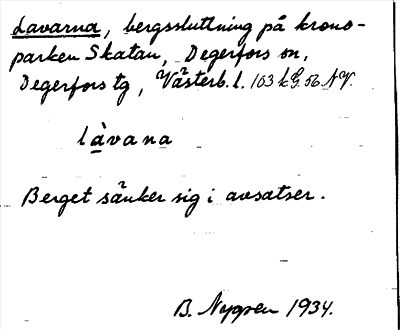 Lavarna, bergssluttning på krono-
parken Skatan, Degerfors sn,
Degerfors tg, Västerb. l. 103 k G. 56 N V.
làvana
Berget sänker sig i avsatser.
B. Nygren 1934.